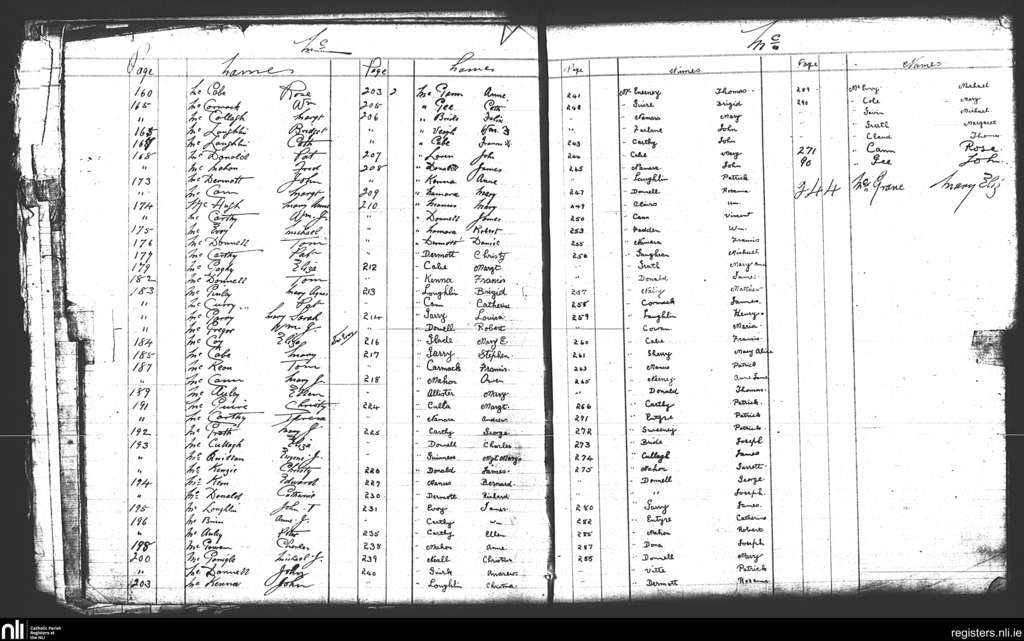 Mc
Page Names Page Names
160 Mc Cabe Rose
165 Mc Cormack Wm
" Mc Cullagh Margt
165 Mc Loughlin Bridget
168 Mc Laughlin Cath
168 Mc Donald Pat
" Mc Mahon Fred
173 Mc Dermott John
" Mc Cann Margt
174 Mc Hugh Mary Anne
" Mc Carthy Wm. J.
175 Mc Evoy Michael
176 Mc Donnell Tom
179 Mc Carthy Pat
179 Mc Eliza
182 Mc Donnell Tom
183 Mc Mary Agnes
" Mc Pat
" Mc Mary Sarah
" Mc Gregor Wm J.
184 Mc Coy Eliza
185 Mc Cabe Mary
187 Mc Keon Tom
" Mc Cann Mary J.
189 Mc Auley Ellen
191 Mc Guire Christy
" Mc Carthy Teresa
192 Mc Grath Mary J.
193 Mc Cullagh Eliza
" Mc Eugene J.
" Mc Kenzie Christy
194 Mc Keon Edward
" Mc Donald Catherine
195 Mc Loughlin John T
196 Mc Brien Anne J.
" Mc Auley Peter
198 Mc Gowan Charles
200 Mc Gonigle Michael J.
" Mc Donnell John
203 Mc Kenna John
203 2 Mc Anne
205 " Gee Cath
206 " Bride Julia
" " Veigh
" " Cabe
207 " John
208 " Donald James
" " Kenna Anne
209 " Namara Mary
210 " Manus Mary
" " Donnell James
" " Namara Robert
" " Dermott Daniel
" Dermott Christy
212 " Cabe Margt
" Kenna Francis
213 " Loughlin Brigid
" Cann Catherine
214 " Garry Louisa
" Dowell Robert
216 " Glade Mary E.
217 " Garry Stephen
" Cormack Francis
218 " Mahon Owen
" Allister Mary
224 " Culla Margt.
" Namara Andrew
225 " Carthy George
" Dowell Charles
" Guinness Mgt Mary
226 " Donald James
229 " Manus Bernard
230 " Dermott Richard
231 " Evoy James
" Carthy Wm
235 " Carthy Ellen
238 " Mahon Anne
239 " Niall Christina
240 " Guirk Andrew
" Loughlin Christina
Mc
Page Names Page Names
241 Mc Enerney Thomas
242 " Guire Brigid
" Namara Mary
" Farlane John
243 " Carthy John
244 " Cabe Mary
245 " Namara John
" Laughlin Patrick
247 " Donnell Rosanna
249 " Wm.
250 " Cann Vincent
253 " Fadden Wm.
255 " Namara Francis
256 " Gaughran Michael
" Grath Mary Anne
" Donald James
257 " Matthew
258 " Cormack James
259 " Laughlin Henry
" Cowan Maria
260 " Cabe Francis
261 " Sherry Mary Alice
263 " Manus Patrick
265 " Nerney Anne Jane
" Donald Thomas
266 " Carthy Patrick
271 " Entyre Patrick
272 " Sweeney Patrick
273 " Bride Joseph
274 " Cullagh James
275 " Mahon Garrett
" Donnell George
" " Joseph
280 " Garry James
282 " Entyre Catherine
285 " Mahon Robert
287 " Dora Joseph
288 " Donnell Mary
" Vitte Patrick
" Dermott Rosanna
289 Mc Evoy Michael
290 " Cole Mary
" Michael
" Grath Margaret
" Claud Thomas
271 " Cann Rose
90 " Gee John
344 Mc Grane Mary Eliz
nli Catholic Parish Registers at the NLI
registers.nli.ie